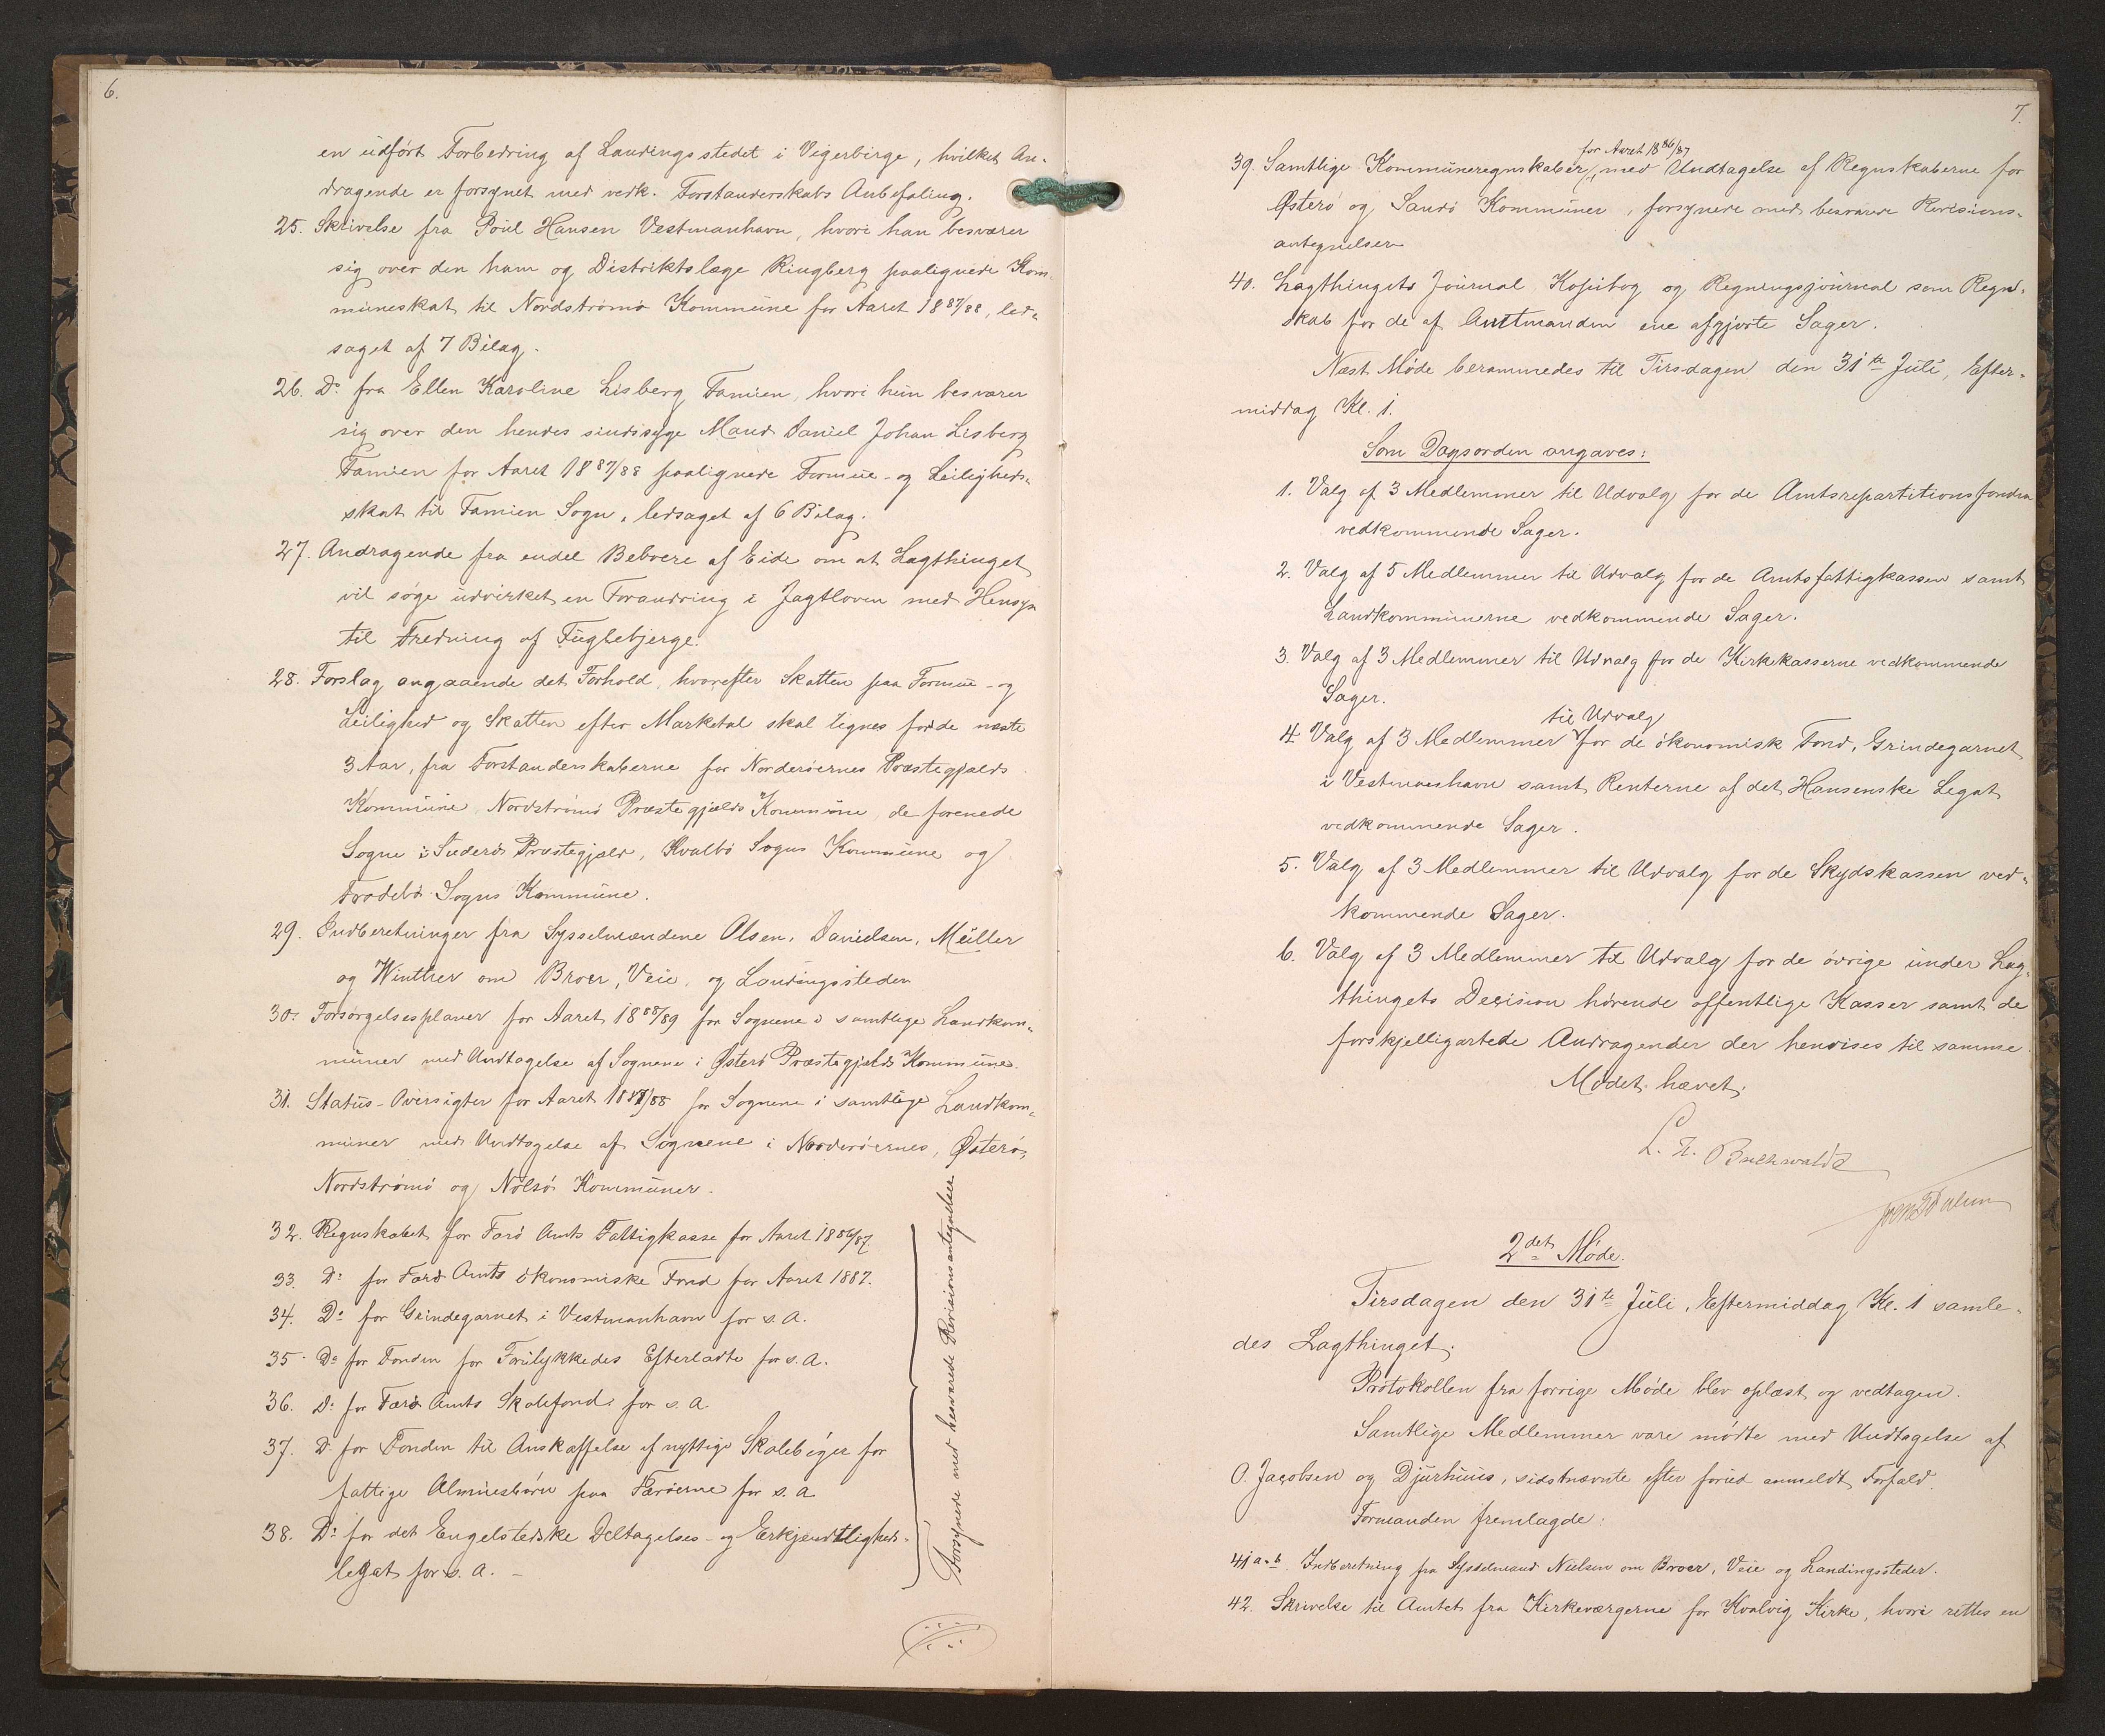 6.
en udført Forbedring af Landingsstedet i Vigerbirge, hvilket An-
dragende er forsynet med vedk. Forstanderskabs Anbefaling.
25. Skrivelse fra Poul Hansen Vestmanhavn, hvori han besværer
sig over den ham og Distriktslæge Ringberg paalignede Kom-
muneskat til Nordstrømø Kommune for Aaret 1887/88, led-
saget af 7 Bilag.
26. Do fra Ellen Karoline Lisberg Famien, hvori hun besværer
sig over den hendes sindssyge Mand Daniel Johan Lisberg
Famien for Aaret 1887/88 paalignede Formue- og Leiligheds-
skat til Famien Sogn, ledsaget af 6 Bilag.
27. Andragende fra endel Beboere af Eide om at Lagthinget
vil søge udvirket en Forandring i Jagtloven med Hensyn
til Fredning af Fuglebjerge.
28. Forslag angaaende det Forhold, hvorefter Skatten paa Formue- og
Leilighed og Skatten efter Marketal skal lignes for de næste
3 Aar, fra Forstanderskaberne for Norderøernes Præstegjælds
Kommune, Nordstrømø Præstegjælds Kommune, de forenede
Sogne i Suderø Præstegjæld, Kvalbø Sogns Kommune og
Frodebø Sogns Kommune.
29. Indberetninger fra Sysselmændene Olsen, Danielsen, Müller
og Winther om Broer, Veie, og Landingssteder
30. Forsørgelsesplaner for Aaret 1888/89 for Sognene i samtlige Landkom-
muner med Undtagelse af Sognene i Østerø Præstegjælds Kommune.
31. Status-Oversigter for Aaret 1887/88 for Sognene i samtlige Landkom-
muner med Undtagelse af Sognene i Norderøernes, Østerø,
Nordstrømø og Nolsø Kommuner.
32. Regnskabet for Færø Amts Fattigkasse for Aaret 1886/87.
33. Do for Færø Amts økonomiske Fond for Aaret 1887.
34. Do for Grindegarnet i Vestmanhavn for s. A.
35. Do for Fonden for Forulykkedes Efterladte for s. A.
36. Do for Færø Amts Skolefond for s. A
37. Do for Fonden til Anskaffelse af nyttige Skolebøger for
fattige Almuesbørn paa Færøerne for s. A
38. Do for det Engelstedske Deltagelses- og Erkjendtligheds-
legat for s. A. -
Forsynede med besvarede Revisionsantegnelser
7.
for Aaret 1886/87
39. Samtlige Kommuneregnskaber, med Undtagelse af Regnskaberne for
Østerø og Sandø Kommuner, forsynede med besvarede Revisions-
antegnelser
40. Lagthingets Journal, Kopibog og Regningsjournal som Regn-
skab for de af Amtmanden ene afgjorte Sager.
Næst Møde berammedes til Tirsdagen den 31te Juli, Efter-
middag Kl. 1.
Som Dagsorden angaves:
1. Valg af 3 Medlemmer til Udvalg for de Amtsrepartitionsfonden
vedkommende Sager.
2. Valg af 5 Medlemmer til Udvalg for de Amtsfattigkassen samt
Landkommunerne vedkommende Sager.
3. Valg af 3 Medlemmer til Udvalg for de Kirkekasserne vedkommende
Sager.
til Udvalg
4. Valg af 3 Medlemmer for de økonomisk Fond, Grindegarnet
i Vestmanshavn samt Renterne af det Hansenske Legat
vedkommende Sager.
5. Valg af 3 Medlemmer til Udvalg for de Skydskassen ved-
kommende Sager.
6. Valg af 3 Medlemmer til Udvalg for de øvrige under Lag-
thingets Decision hørende offentlige Kasser samt de
forskjelligartede Andragender der henvises til samme
Mødet hævet.
L. E. Buchwaldt
2det Møde.
Tirsdagen den 31te Juli, Eftermiddag Kl. 1 samle-
des Lagthinget.
Protokollen fra forrige Møde blev oplæst og vedtagen.
Samtlige Medlemmer vare mødte med Undtagelse af
O. Jacobsen og Djurhuus, sidstnævnte efter forud anmeldt Forfald.
Formanden fremlagde:
41 a-b. Indberetning fra Sysselmand Nielsen om Broer, Veie og Landingssteder.
42. Skrivelse til Amtet fra Kirkeværgerne for Kvalvig Kirke, hvori rettes en